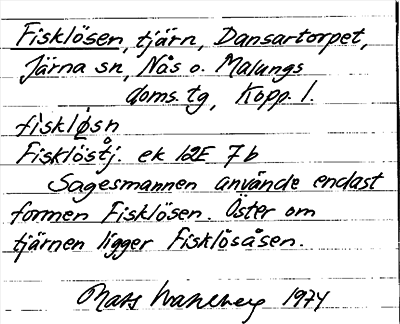 Fisklösen, tjärn, Dansartorpet,
Järna sn, Nås o. Malungs
doms. tg, Kopp. l.
fìskløsn
Fisklöstj. ek 12E 7b
Sagesmannen använde endast
formen Fisklösen. Öster om
tjärnen ligger Fisklösåsen.
Mats Wahlberg 1974